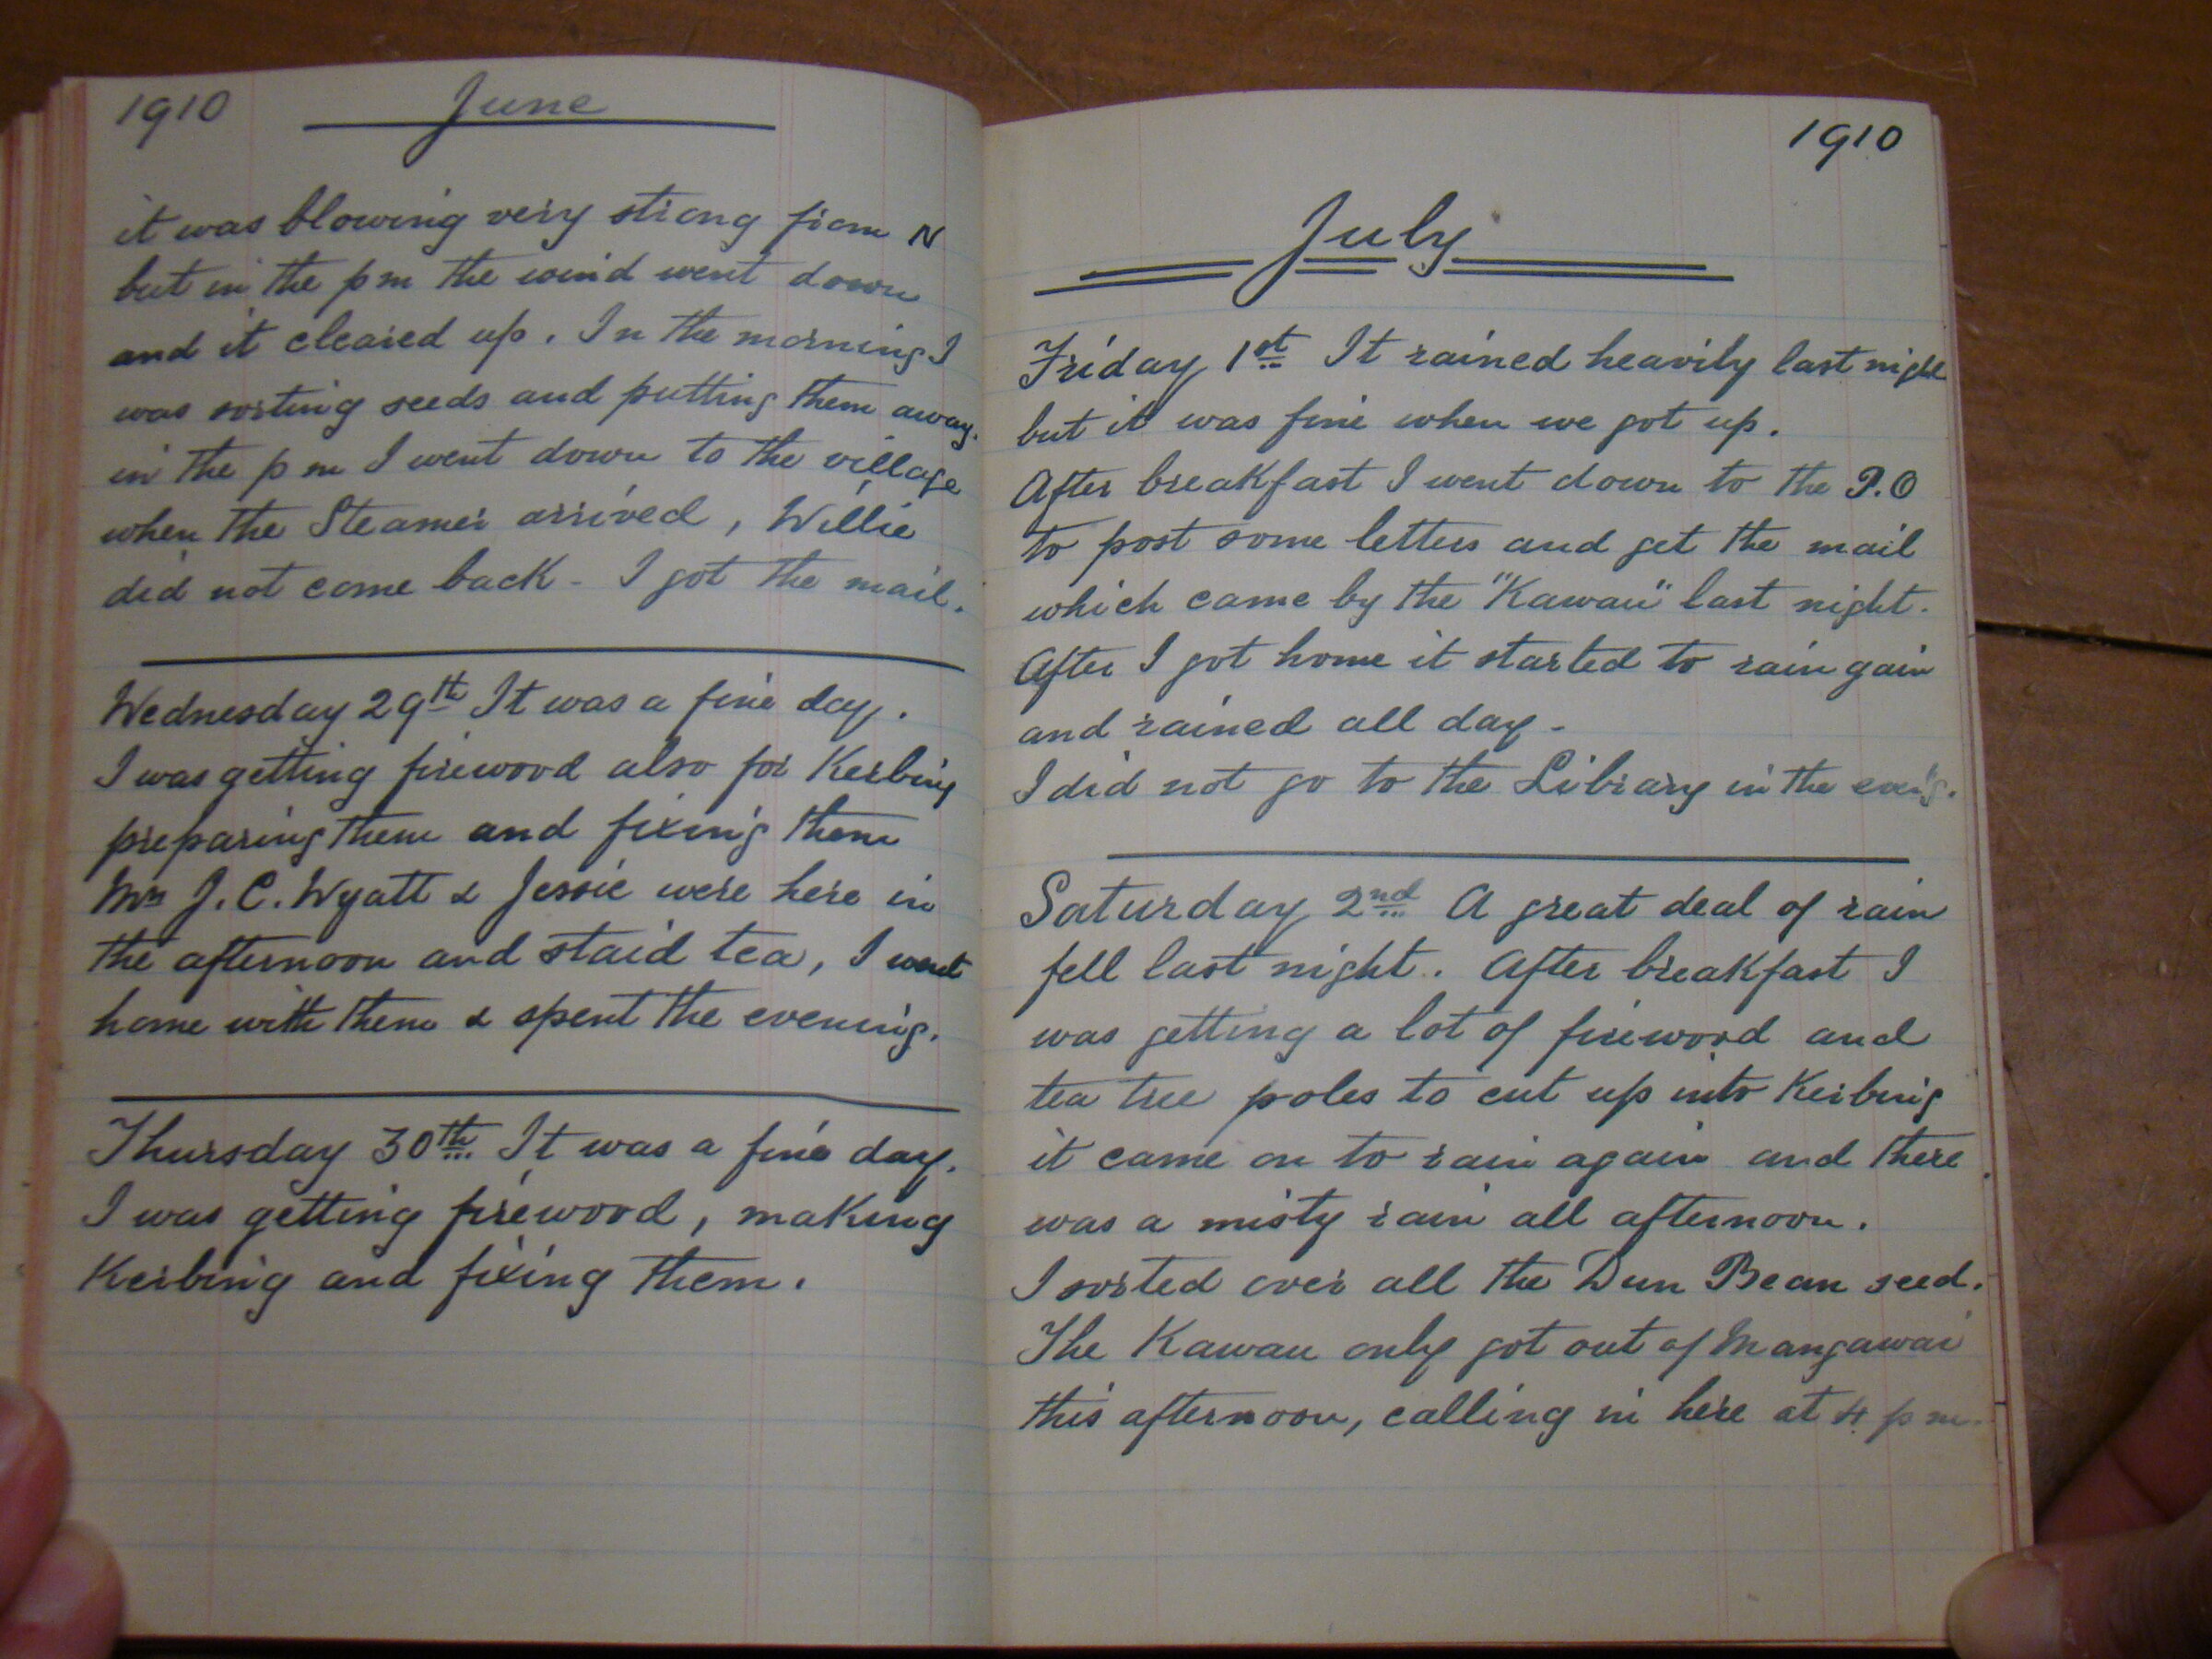 1910 June
it was blowing very strong from N
but in the pm the wind went down
and it cleared up. In the morning I
was sorting seeds and putting them away.
in the pm I went down to the village
when the Steamer arrived, Willie
did not come back - I got the mail.
Wednesday 29th It was a fine day.
I was getting firewood also for Kerbing
preparing them and fixing them
Mrs J. C. Wyatt & Jessie were here in
the afternoon and staid tea, I went
home with them & spent the evening.
Thursday 30th It was a fine day.
I was getting firewood, making
Kerbing and fixing them.
1910
July
Friday 1st It rained heavily last night
but it was fine when we got up.
After breakfast I went down to the P.O
to post some letters and get the mail
which came by the "Kawau" last night.
After I got home it started to rain gain
and rained all day -
I did not go to the Library in the eveng.
Saturday 2nd A great deal of rain
fell last night. After breakfast I
was getting a lot of firewood and
tea tree poles to cut up into Kerbing
it came on to rain again and there
was a misty rain all afternoon.
I sorted over all the Dun Bean seed.
The Kawau only got out of Mangawai
this afternoon, calling in here at 4 pm.